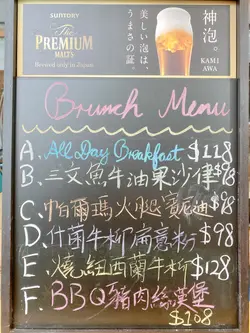 SUNTORY
The
PREMIUM
MALT'S
Brewed only in Japan
神泡。
KAMI
AWA
美しい泡は、
うまさの証。
Brunch Menu
A. All Day Breakfast $118
B. 三文魚牛油果沙律 $98
C. 帕爾瑪火腿 $98
D. 什菌牛柳 意粉 $98
E. 燒紐西蘭牛柳 $128
F. BBQ豬肉 漢堡
$108